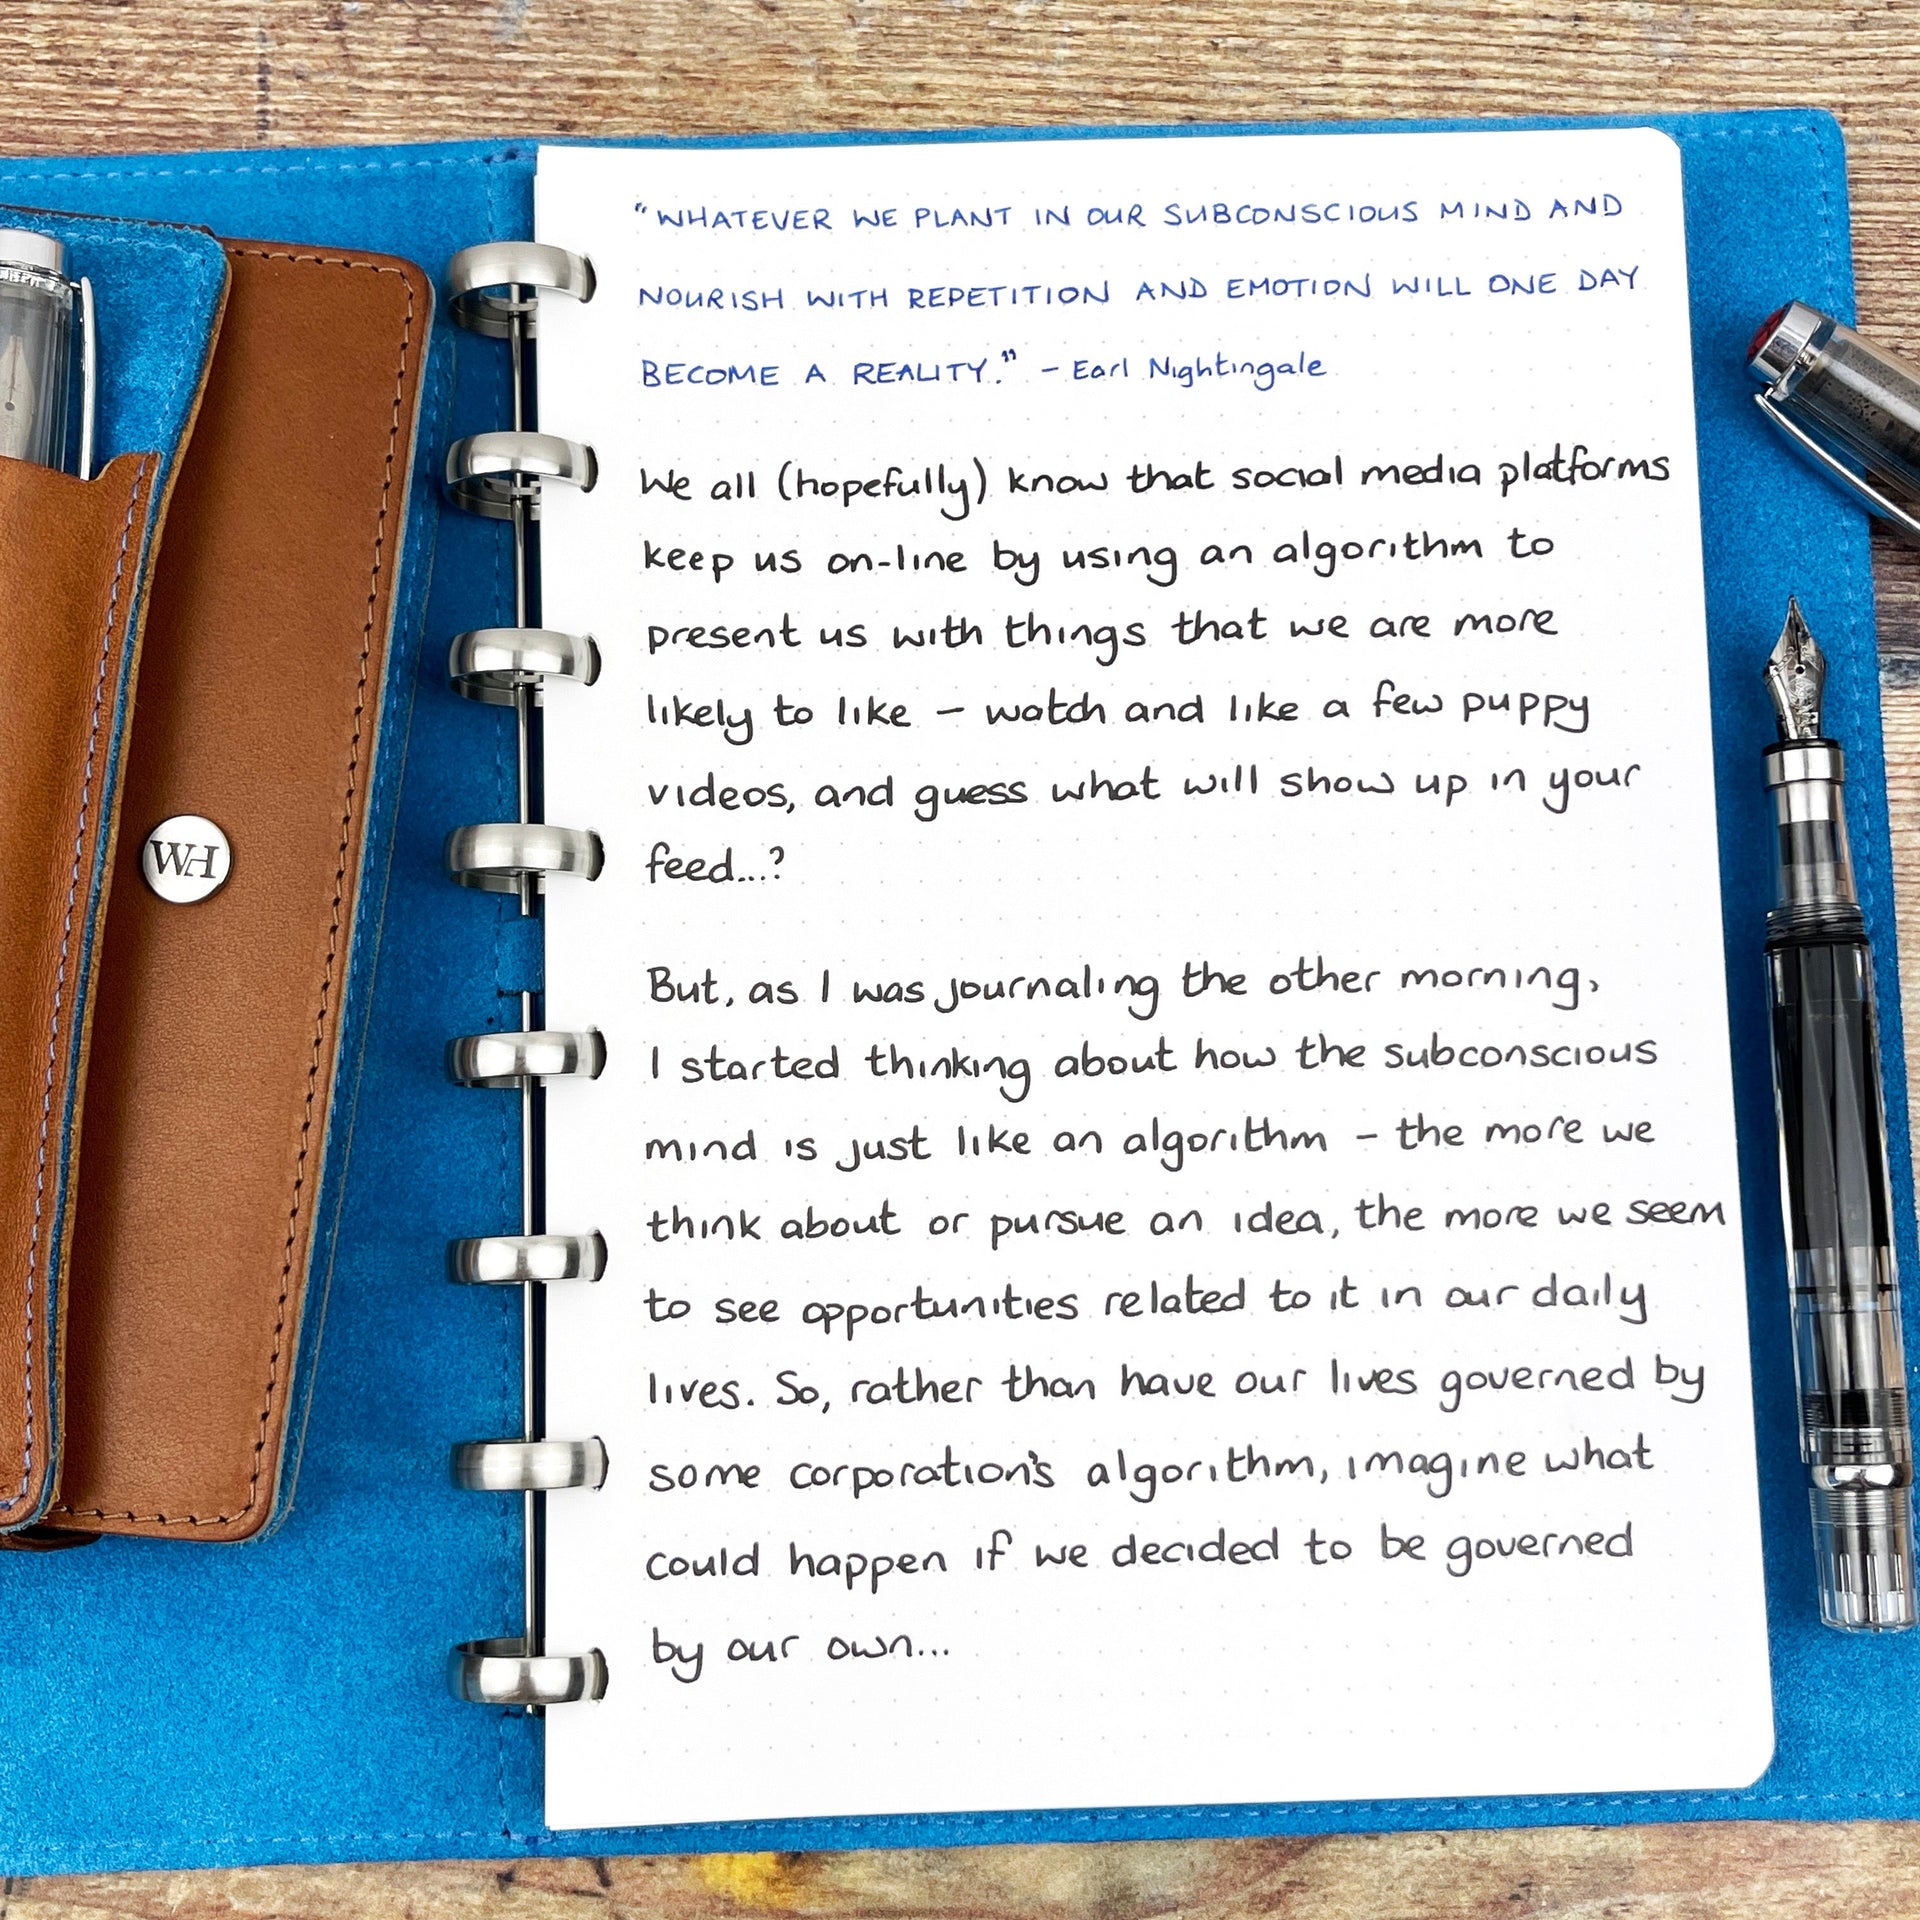 WH
"WHATEVER WE PLANT IN OUR SUBCONSCIOUS MIND AND
NOURISH WITH REPETITION AND EMOTION WILL ONE DAY
BECOME A REALITY." – Earl Nightingale
We all (hopefully) know that social media platforms
keep us on-line by using an algorithm to
present us with things that we are more
likely to like – watch and like a few puppy
videos, and guess what will show up in your
feed...?
But, as I was journaling the other morning,
I started thinking about how the subconscious
mind is just like an algorithm – the more we
think about or pursue an idea, the more we seem
to see opportunities related to it in our daily
lives. So, rather than have our lives governed by
some corporation's algorithm, imagine what
could happen if we decided to be governed
by our own...